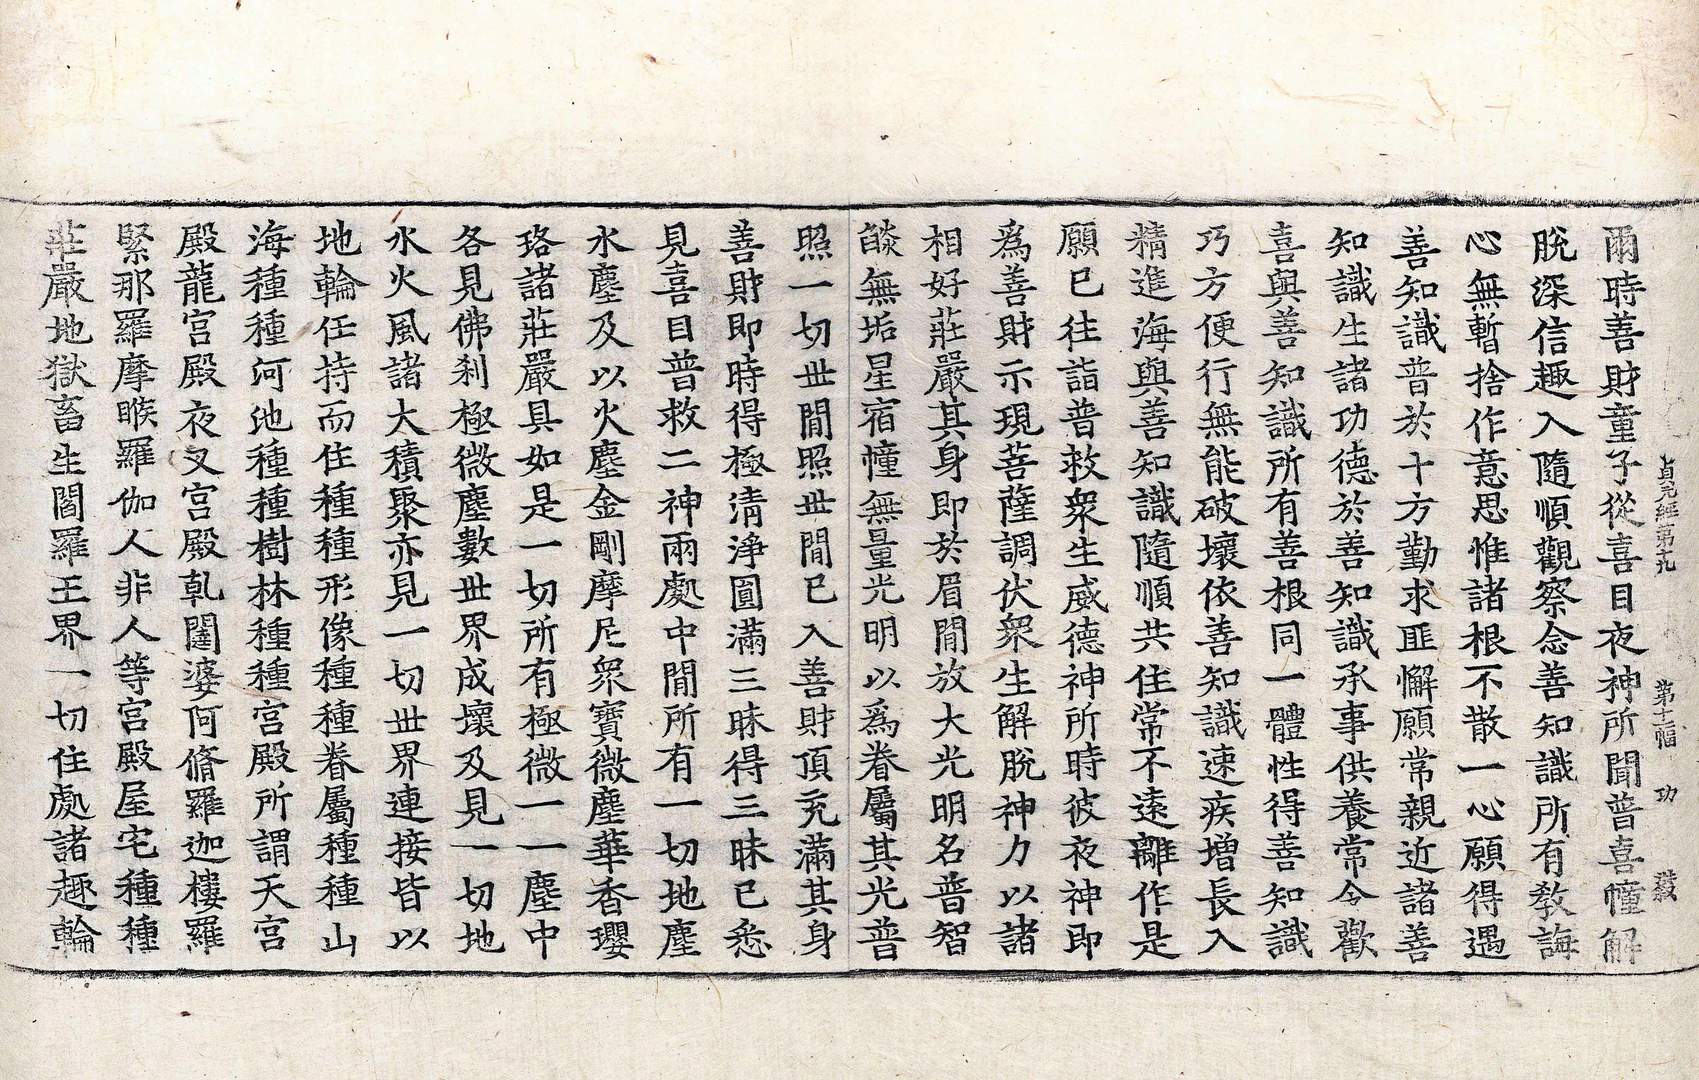 貞元經第十九 第十二幅 功
爾時善財童子從喜目夜神所聞普喜幢解
脫深信趣入隨順觀察念善知識所有教誨
心無暫捨作意思惟諸根不散一心願得遇
善知識普於十方勤求匪懈願常親近諸善
知識生諸功德於善知識承事供養常令歡
喜與善知識所有善根同一體性得善知識
巧方便行無能破壞依善知識速疾增長入
精進海與善知識隨順共住常不遠離作是
願已往詣普救衆生威德神所時彼夜神即
爲善財示現菩薩調伏衆生解脫神力以諸
相好莊嚴其身即於眉間放大光明名普智
燄無垢星宿幢無量光明以爲眷屬其光普
照一切世間照世間已入善財頂充滿其身
善財即時得極清淨圓滿三昧得三昧已悉
見喜目普救二神兩處中間所有一切地塵
水塵及以火塵金剛摩尼衆寶微塵華香瓔
珞諸莊嚴具如是一切所有極微一一塵中
各見佛刹極微塵數世界成壞及見一切地
水火風諸大積聚亦見一切世界連接皆以
地輪任持而住種種形像種種眷屬種種山
海種種河池種種樹林種種宮殿所謂天宮
殿龍宮殿夜叉宮殿乹闥婆阿脩羅迦樓羅
緊那羅摩睺羅伽人非人等宮殿屋宅種種
莊嚴地獄畜生閻羅王界一切住處諸趣輪